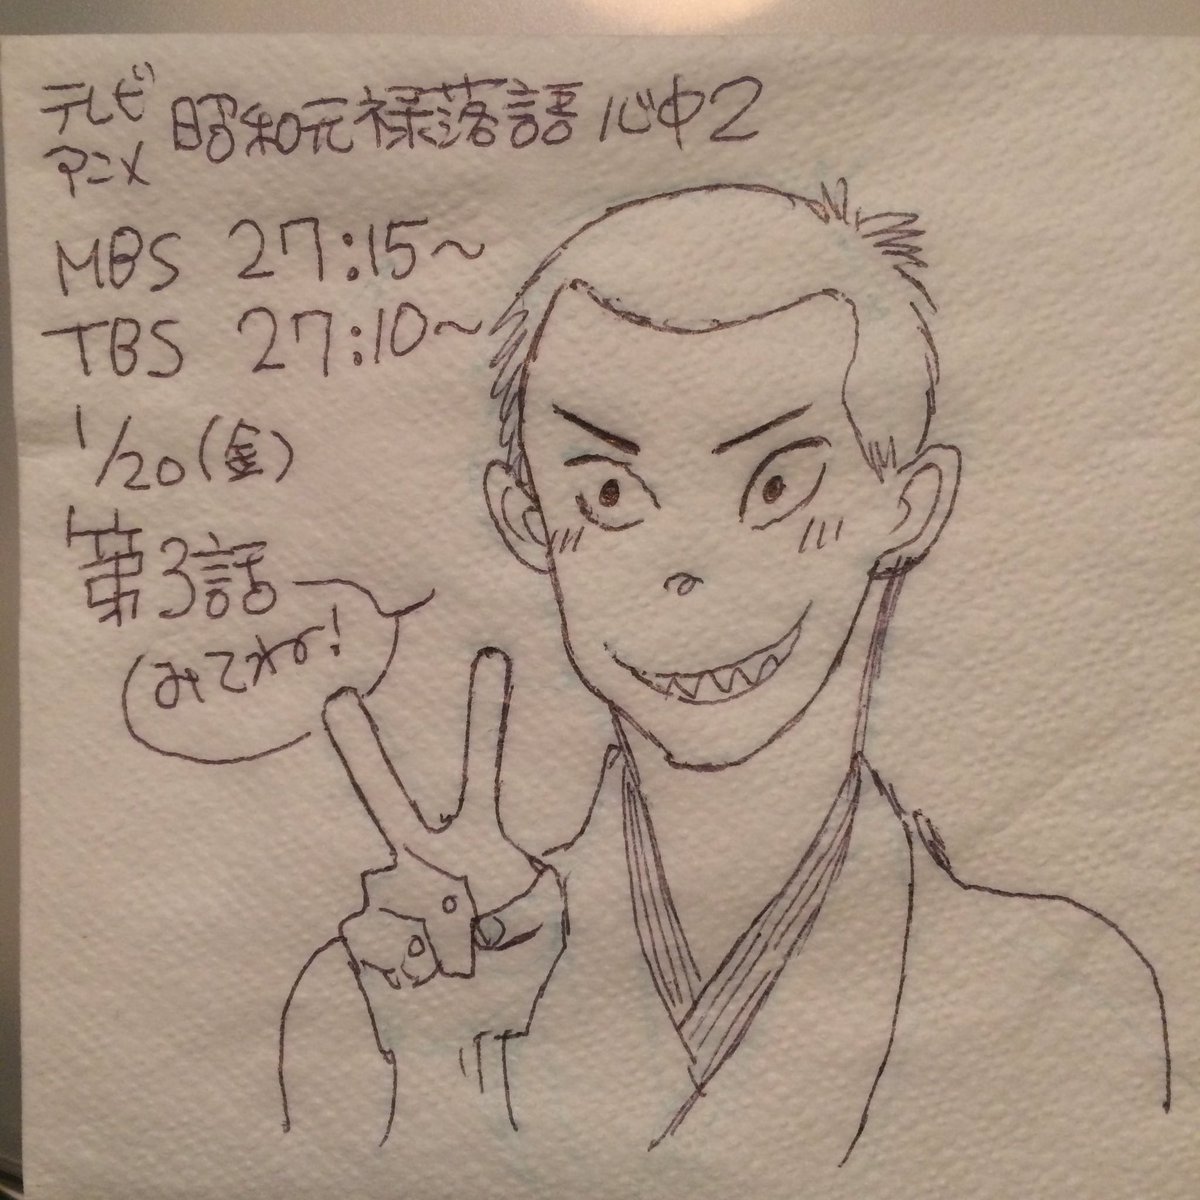 テレビ
アニメ 昭和元禄落語心中2
MBS 27:15~
TBS 27:10~
1/20(金)
第3話
みてね!